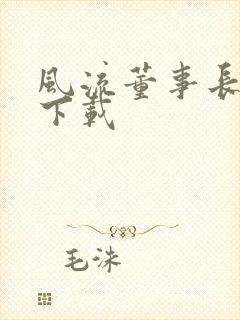 風流董事長
下載
毛洙